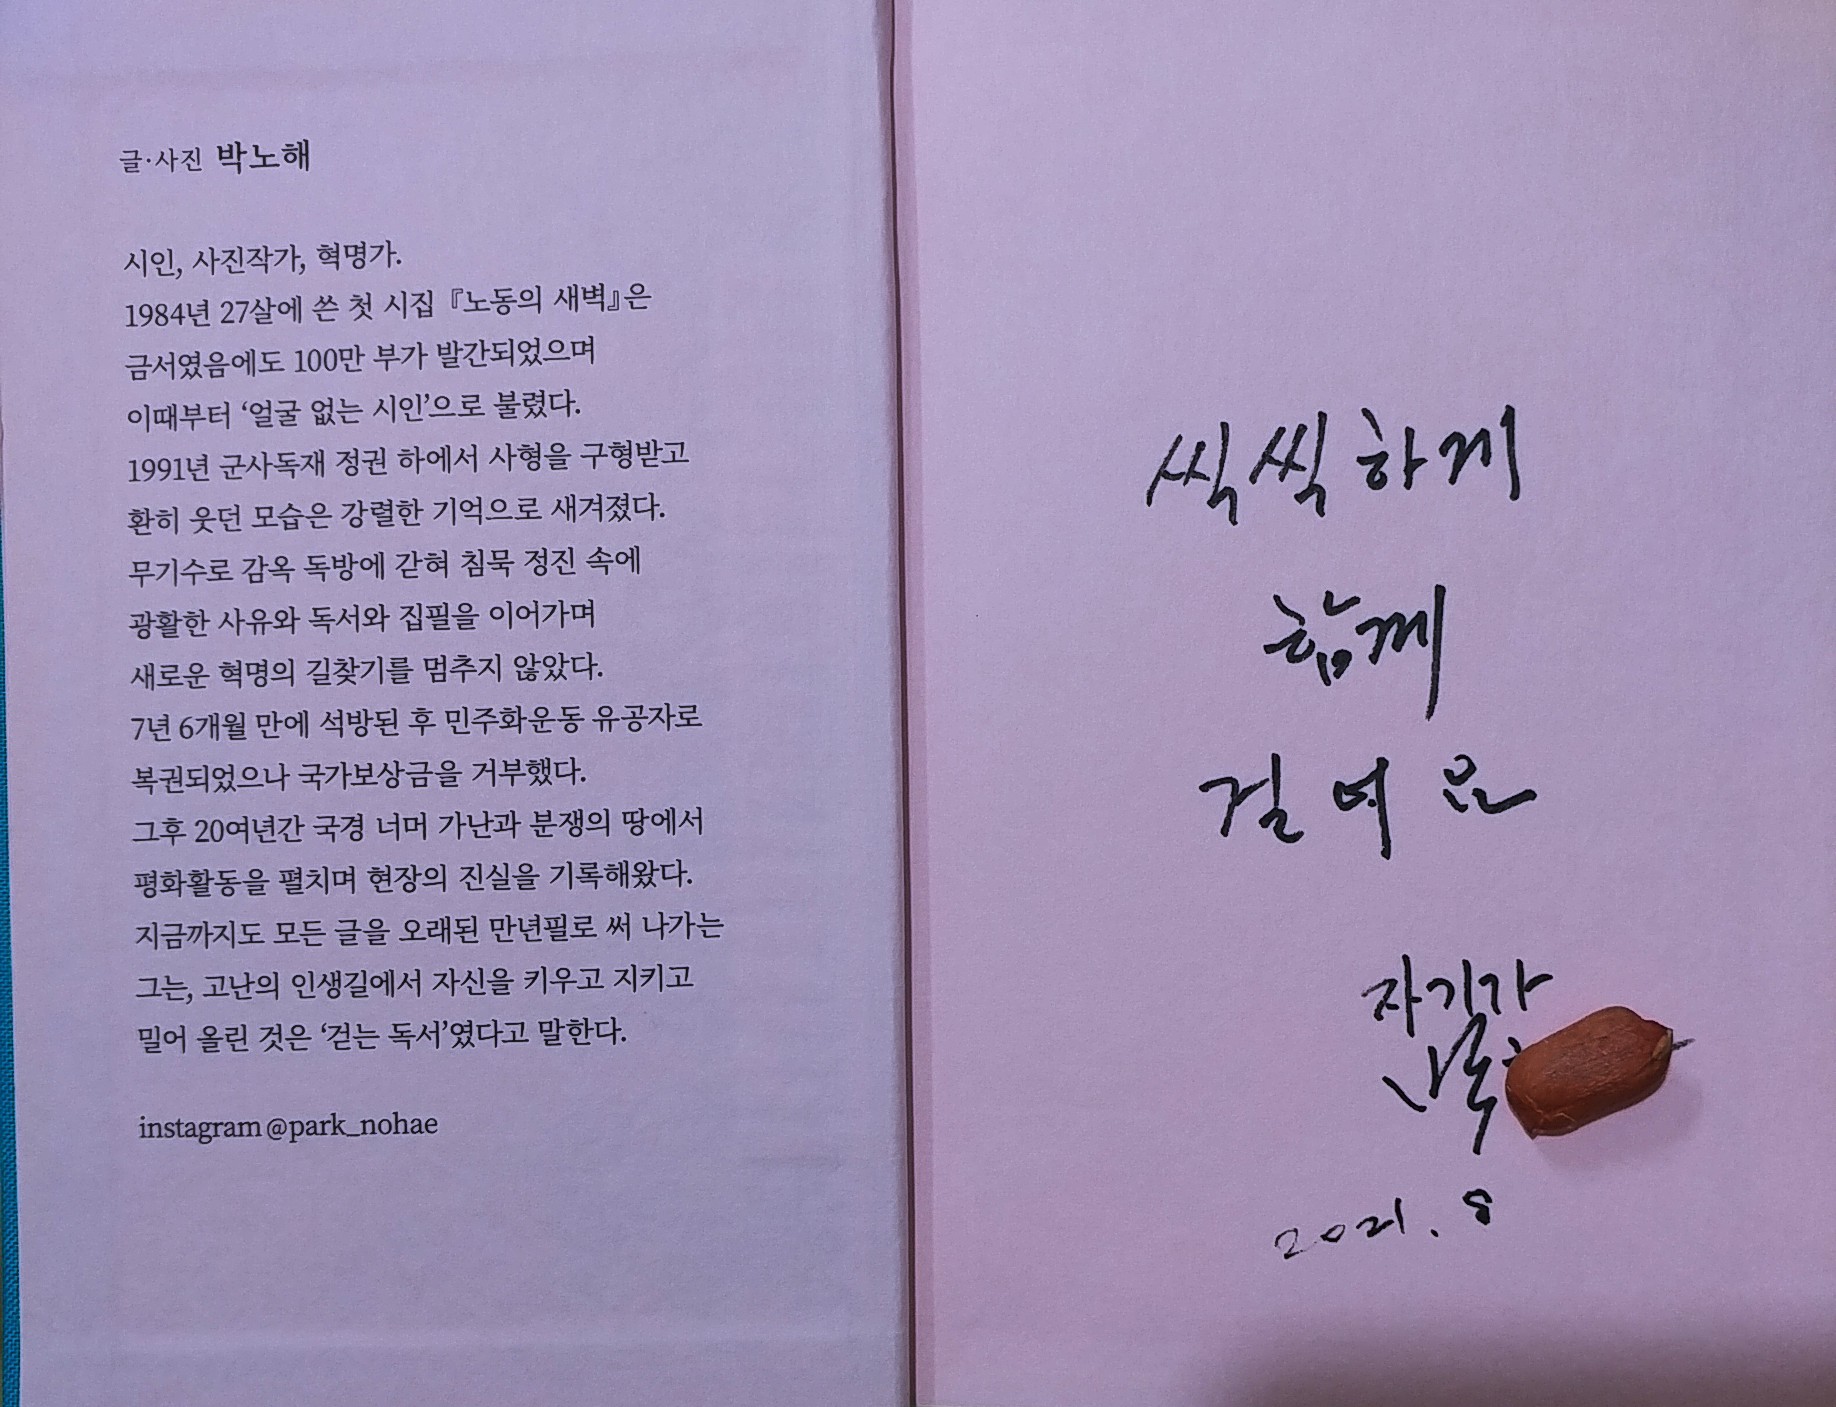 글·사진 박노해
시인, 사진작가, 혁명가.
1984년 27살에 쓴 첫 시집 『노동의 새벽』은
금서였음에도 100만 부가 발간되었으며
이때부터 ‘얼굴 없는 시인’으로 불렸다.
1991년 군사독재 정권 하에서 사형을 구형받고
환히 웃던 모습은 강렬한 기억으로 새겨졌다.
무기수로 감옥 독방에 갇혀 침묵 정진 속에
광활한 사유와 독서와 집필을 이어가며
새로운 혁명의 길찾기를 멈추지 않았다.
7년 6개월 만에 석방된 후 민주화운동 유공자로
복권되었으나 국가보상금을 거부했다.
그후 20여년간 국경 너머 가난과 분쟁의 땅에서
평화활동을 펼치며 현장의 진실을 기록해왔다.
지금까지도 모든 글을 오래된 만년필로 써 나가는
그는, 고난의 인생길에서 자신을 키우고 지키고
밀어 올린 것은 ‘걷는 독서’였다고 말한다.
instagram@park_nohae
씩씩하게
함께
걸어요
자기가
2021. 8